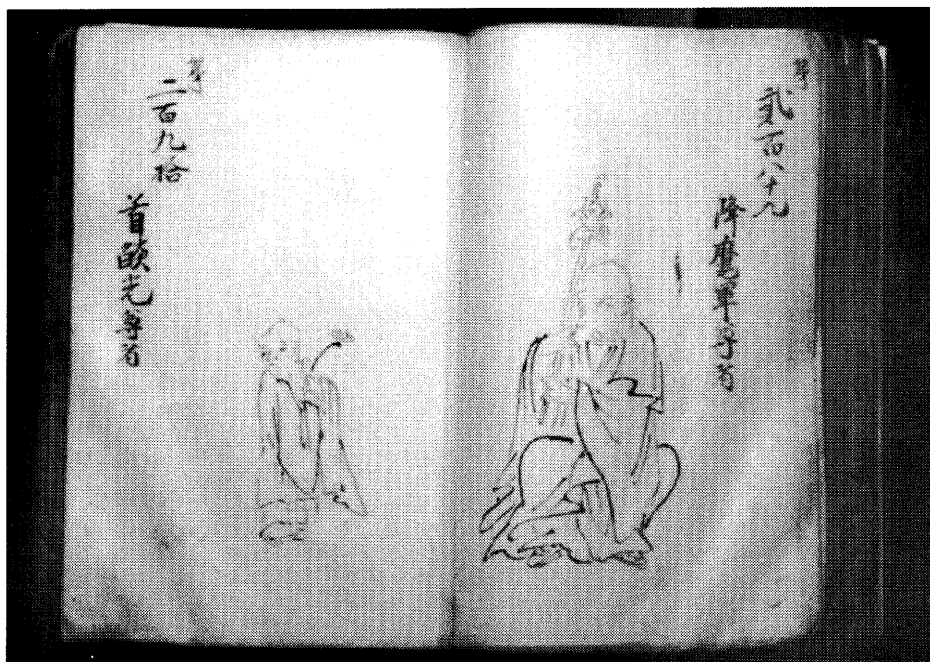 第貳百八十九
降魔軍尊者
第二百九拾
首光尊者